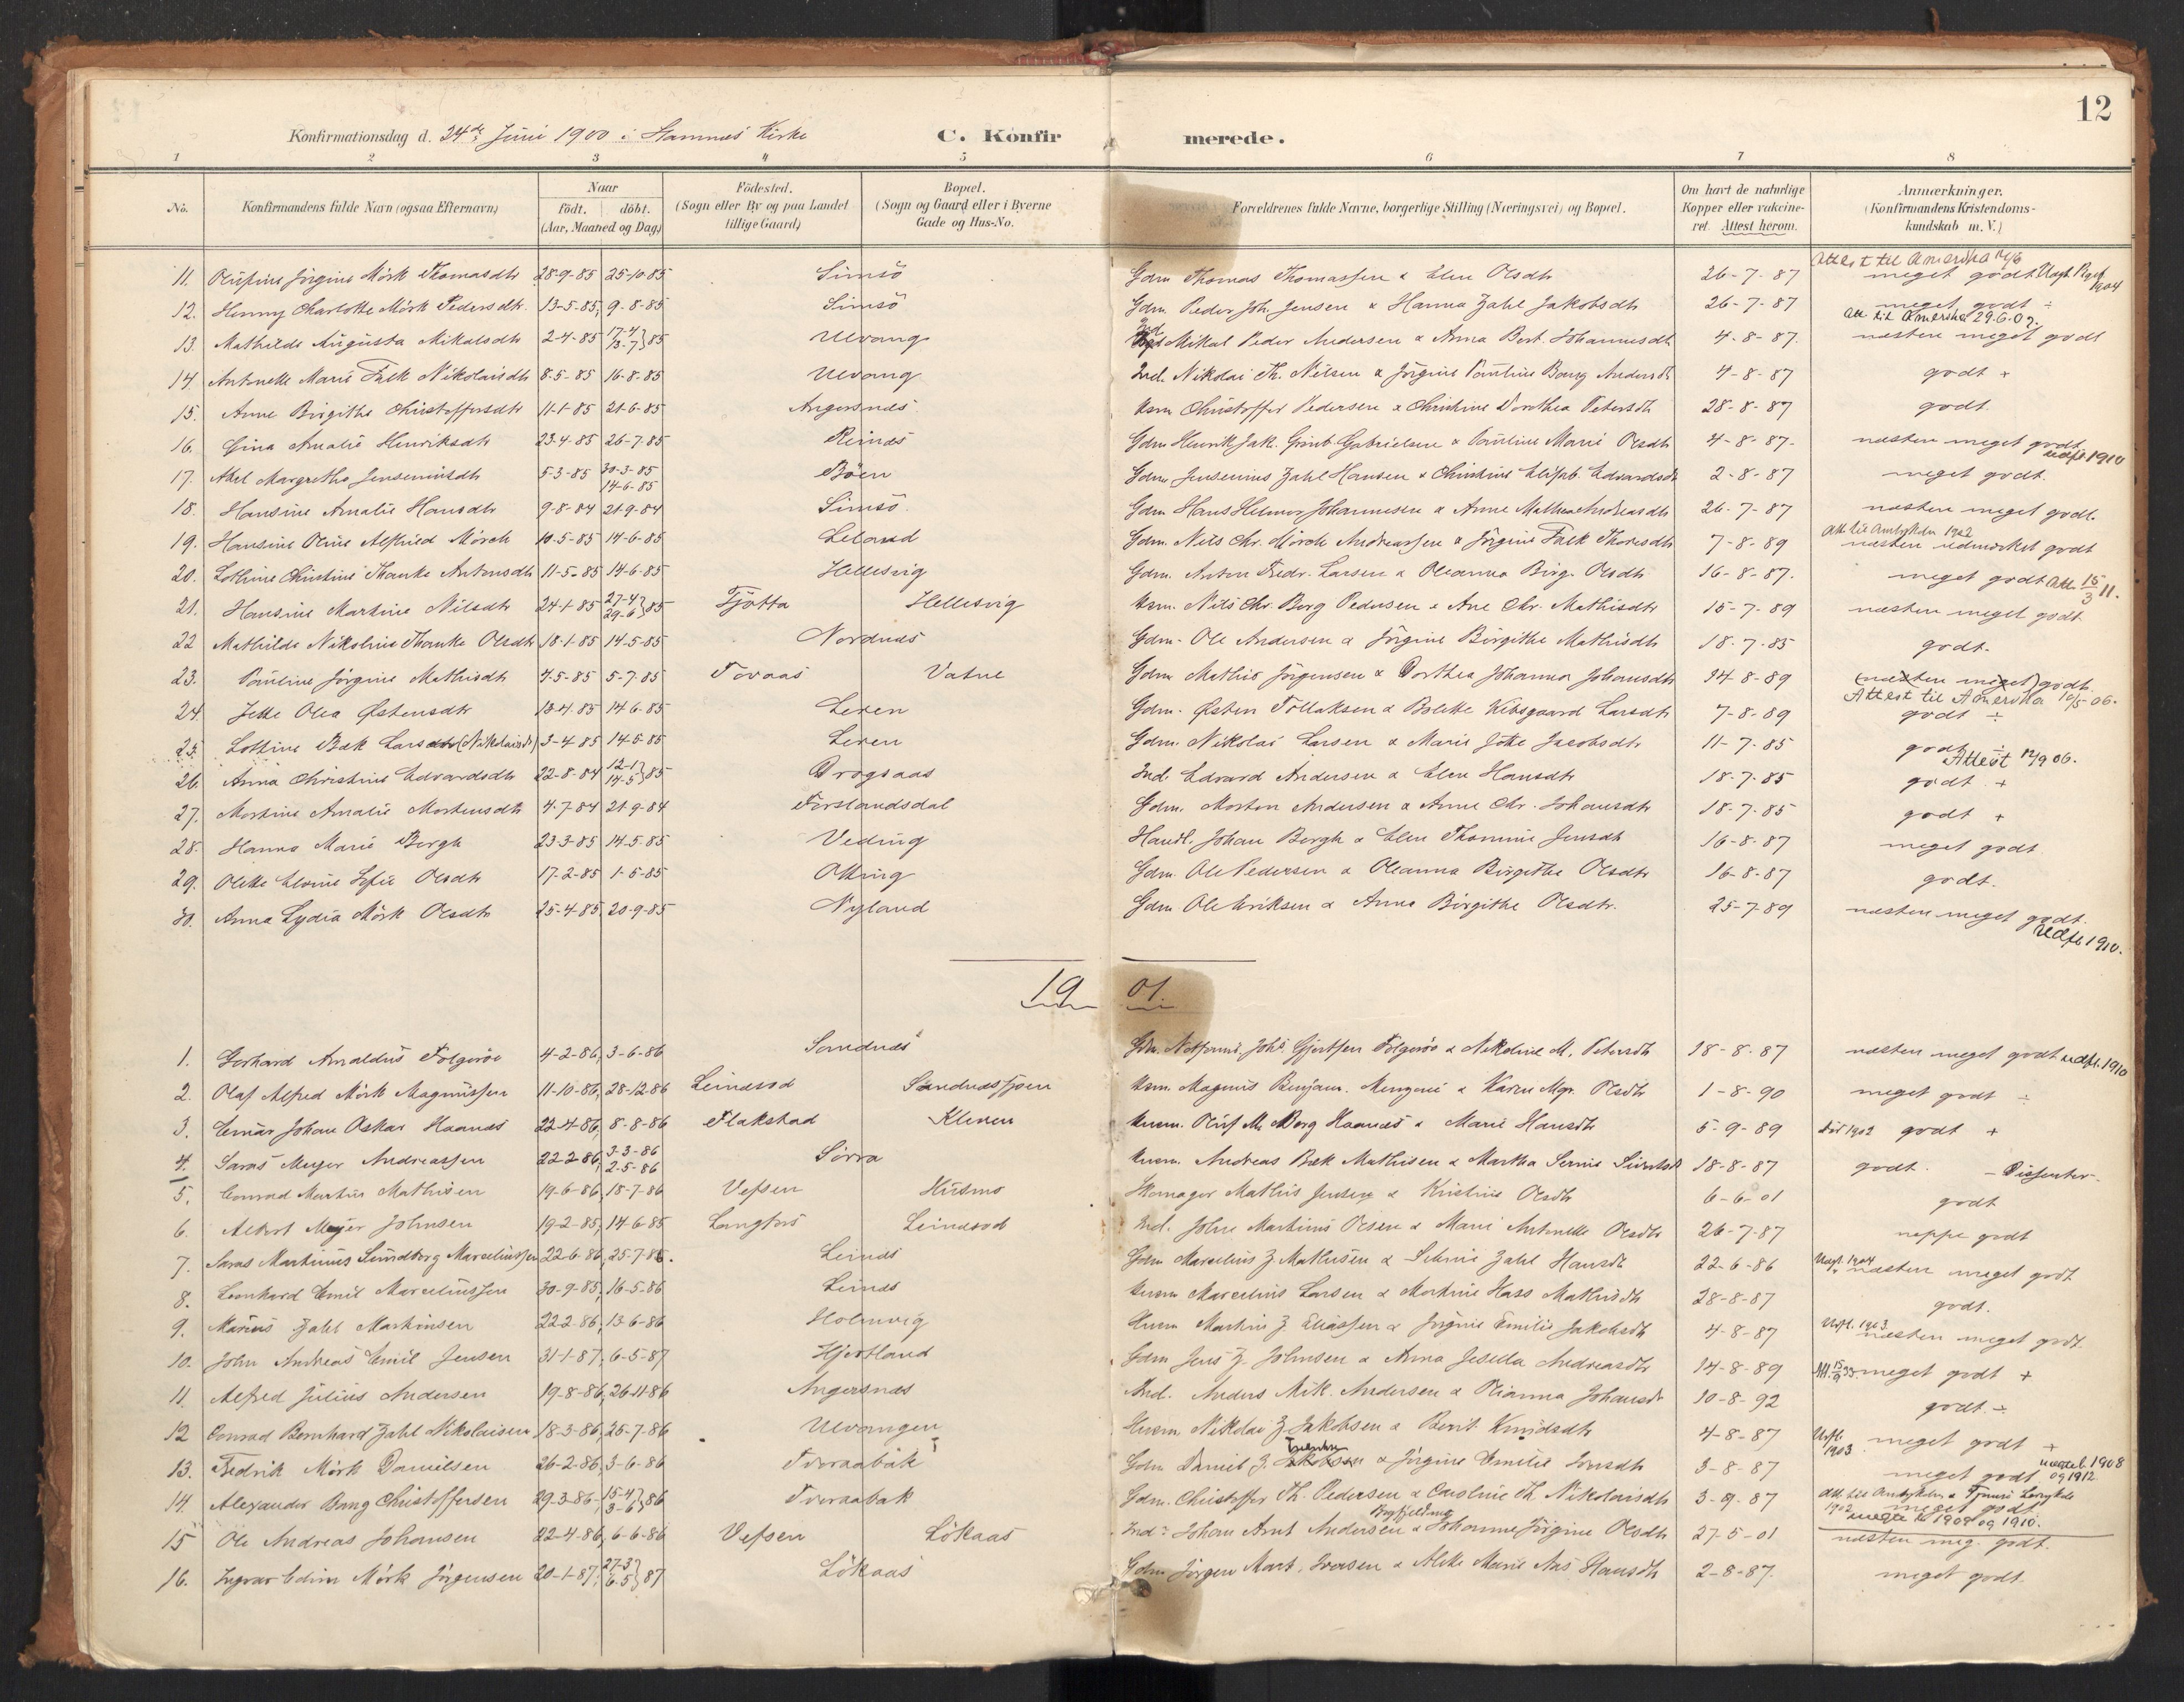 12
Konfirmationsdag d. 24de Juni 1900 i Stamnæs Kirke C. Konfir merede.
1 2 3 4 5 6 7 8
No. Konfirmandens fulde Navn (ogsaa Efternavn) Naar födt. döbt. (Aar, Maaned og Dag) Födested. (Sogn eller By og paa Landet tillige Gaard) Bopæl. (Sogn og Gaard eller i Byerne Gade og Hus-No. Forældrenes fulde Navne, borgerlige Stilling (Næringsvei) og Bopæl. Om havt de naturlige Kopper eller vakcineret. Attest herom. Anmærkninger. (Konfirmandens Kristendomskundskab m. V.)
11. Jörgine Mörk Thomasdtr 28-9-85 25-10-85 Simsö Gdm Thomas Thomassen & Elen Olsdtr 26-7-87 Attest til Amerika meget godt 1904
12. Henny Charlotte Mörk Pedersdtr. 13-5-85, 9-8-85 Simsö Gdm. Peder Joh. Jensen & Hanna Zahl Jakobsdtr 26-7-87 meget godt ÷
13. Mathilde Augusta Mikalsdtr 2-4-85 17-4 13-7 } 85 Ulvang Mikal Peder Andersen & Anna Berit Johannesdtr 4-8-87. Att til Amerika 29.6.02. næsten meget godt
14. Antonette Marie Falk Nikolaisdtr 8-5-85 16-8-85 Ulvang Ind. Nikolai Th. Nilsen & Jörgine Pauline Bang Andersdtr 4-8-87 godt +
15. Anne Birgithe Christoffersdtr 11-1-85 21-6-85 Angersnæs Christoffer Pedersen & Christine Dorthea Petersdtr 28-8-87 godt.
16. Gina Amalie Henriksdtr 23-4-85 26-7-85 Reinæs Gdm Henrik Jak. Gabrielsen & Pauline Marie Olsdtr 4-8-87. næsten meget godt udfl 1910
17. Margrethe Jenseniusdtr 5-3-85 30-3-85 14-6-85 Böen Gdm Jensenius Zahl Hansen & Christine Elisab. Edvardsdtr 2-8-87 meget godt.
18. Hansine Amalie Hansdtr 9-8-84 21-9-84 Simsö. Gdm Hans Helmer Johannesen & Anne Mathea Andreasdtr 26-7-87 næsten meget godt.
19. Hansine Oline Alfhild Mörch 10-5-85 14-6-85 Leland Gdm. Nils Chr. Mörch Andreassen & Jörgine Falk Thoresdtr 7-8-89 1902 næsten udmærket godt
20. Lothine Christine Hanke Antonsdtr 11-5-85 14-6-85 Hellesvig Gdm. Anton Fredr. Larsen & Oleanna Birg. Olsdtr 16-8-87. meget godt Att. 15/3 11.
21. Hansine Martine Nilsdtr 24-1-85 27-4 29-6 } 85 Tjötta Hellesvig Nils Chr. Borg Pedersen & Ane Chr. Mathisdtr 15-7-89 næsten meget godt
22 Mathilde Nikoline Hanke Olsdtr 18-1-85 14-5-85 Nordnæs Gdm. Ole Andersen & Jörgine Birgithe Mathisdtr 18-7-85 godt.
23. Pauline Jörgine Mathisdtr 7-5-85 5-7-85 Vatne Gdm Mathis Jörgensen & Dorthea Johanna Johansdtr 14-8-89 (næsten meget) godt
24 Jette Olea Østensdtr 13-4-85 14-6-85 Leren Gdm. Østen Tollaksen & Bolette Kibsgaard Larsdtr 7-8-89 Attest til Amerika 10/5-06. godt ÷
25. Lothine Bæk Larsdtr (Nikolaisdtr) 3-4-85 14-5-85 Leren Gdm. Nikolai Larsen & Marie Jacobsdtr 11-7-85 godt ÷
26. Anna Christine Edvardsdtr 22-8-84 12-1 14-5 } 85 Drogsaas Ind. Edvard Andersen & Elen Hansdtr 18-7-85 Attest 12/9 06. godt +
27. Martine Amalie Mortensdtr 4-7-84 21-9-84 Forslandsdal Gdm. Morten Andersen & Anne Chr. Johansdtr 18-7-85 godt +
28. Hanna Marie Bergh 23-3-85 14-5-85 Veding Handl. Johan Bergh & Elen Thomine Jensdtr 16-8-87 meget godt
29. Olette Elvine Sofie Olsdtr 17-2-85 1-5-85 Otting Gdm. Ole Pedersen & Oleanna Birgithe Olsdtr 16-8-87 godt.
30. Anna Lydia Mörk Olsdtr 25-4-85 20-9-85 Nyland Gdm Ole Eriksen & Anna Birgithe Olsdtr. 25-7-89 næsten meget godt. Udfl 1910.
19 01.
1. Gerhard Arnoldus Folgeröe 4-2-86, 3-6-86 Sandnæs Gjertsen Folgeröe & Nikoline M. Petersdtr 18-8-87 næsten meget godt udfl. 1910
2. Olaf Alfred Mörk Magnussen 11-10-86, 28-12-86 Leinesod Sandnæssjoen Magnus Benjam. & Karen Mgr. Olsdtr 1-8-90 meget godt ÷
3. Einar Johan Oskar Haanæs 22-4-86, 8-8-86 Flakstad Kleven M. Borg Haanæs & Marie Hansdtr 5-9-89 1902 godt +
4. Meyer Andreassen 22-2-86, 3-3-86 2-5-86 Sörra Andreas Bæk Mathisen & Martha 18-8-87 godt. - Dissenter-
5. Conrad Martin Mathisen 19-6-86, 18-7-86 Vefsen Husmo Skomager Mathis Jensen & Kristine Olsdtr 6-6-01 godt
6. Albert Meyer Johnsen 19-2-85, 14-6-85 Leinesod Ind. John Martinus Olsen & Marie Antonette Olsdtr 26-7-87 neppe godt
7. Martinus Sundborg Marceliussen 22-6-86, 25-7-86. Leines Gdm Marcelius Z. Mathisen & Zahl Hansdtr 22-6-86 1904 næsten meget godt
8. Leonhard Emil Marceliussen 30-9-85, 16-5-86 Leines Marcelius Larsen & Martine Hass Mathisdtr 28-8-87 godt.
9. Marius Zahl Martinsen 22-2-86, 13-6-86 Holmvig Martin Z. Eliassen & Jörgine Emilie Jakobsdtr 4-8-87 Udfl. 1903 næsten meget godt.
10. John Andreas Emil Jensen 31-1-87, 6-5-87 Hjertland Gdm Jens Z. Johnsen & Anna Andreasdtr 14-8-89 meget godt +
11. Alfred Julius Andersen 19-8-86, 26-11-86 Angersnæs Ind. Anders Mik. Andersen & Olianna Johansdtr 10-8-92 godt. ÷
12 Conrad Bernhard Zahl Nikolaisen 18-3-86, 25-7-86 Ulvangen Nikolai Z. Jakobsen & Berit Knudsdtr 4-8-87 Udfl. 1903 meget godt ÷
13. Fredrik Mörk Danielsen 26-2-86, 3-6-86 Tveraabæk Gdm Daniel Z. & Jörgine Emilie 3-8-87 meget godt 1908 og 1912
14 Alexander Bang Christoffersen 29-3-86, 15-4 3-6 } 86 Tveraabæk Gdm. Christoffer Th. Pedersen & Caroline Th. Nikolaisdtr 3-9-87 1902 meget godt 1909 og 1910.
15 Ole Andreas Johansen 22-4-86, 6-6-86 Vefsen Lökaas Ind. Johan Arnt Andersen & Johanne Jörgine Olsdtr 27-5-01 næsten meg. godt.
16. Ingvar Edvin Mörk Jörgensen 20-1-87, 27-3 6-5 } 87 Lökaas Gdm Jörgen Mart. Iversen & Marie Aas Hansdtr 2-8-87. meget godt.